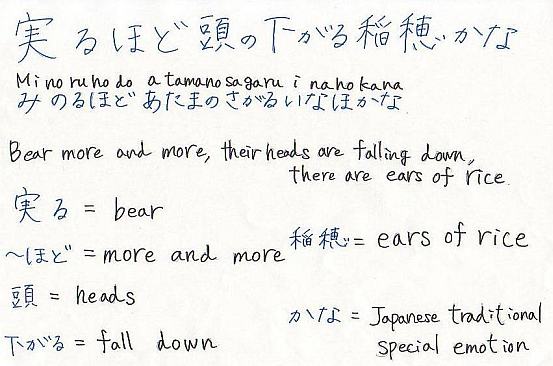 実るほど頭の下がる稲穂かな
Minoruhodo atamanosagaru inahokana
みのるほどあたまのさがるいなほかな
Bear more and more, their heads are falling down,
there are ears of rice.
実る = bear
〜ほど = more and more
稲穂 = ears of rice
頭 = heads
下がる = fall down
かな = Japanese traditional
special emotion